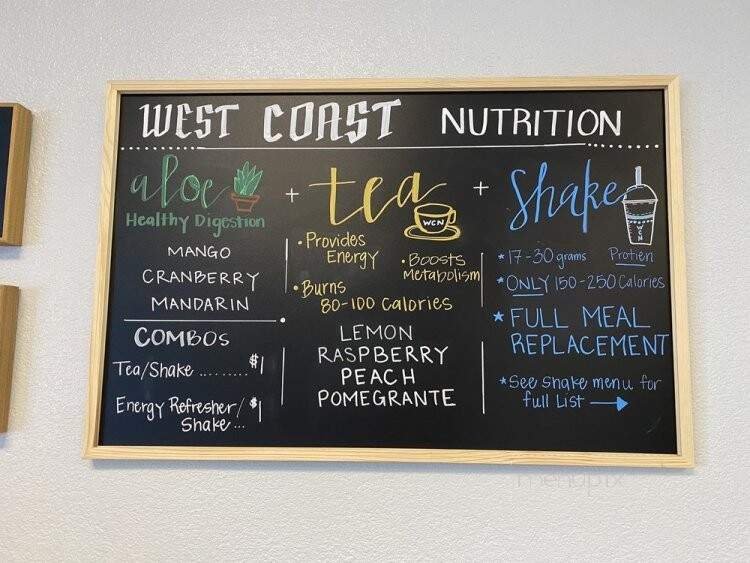 WEST COAST NUTRITION
aloe + tea + Shake
Healthy Digestion
MANGO
CRANBERRY
MANDARIN
COMBOS
Tea/Shake ......... $1
Energy Refresher/ $1
Shake...
WCN
• Provides
Energy
• Boosts
Metabolism
• Burns
80-100 Calories
LEMON
RASPBERRY
PEACH
POMEGRANTE
WCN
* 17-30 grams Protien
* ONLY 150-250 Calories
* FULL MEAL
REPLACEMENT
* See Shake menu for
full List →
menupix